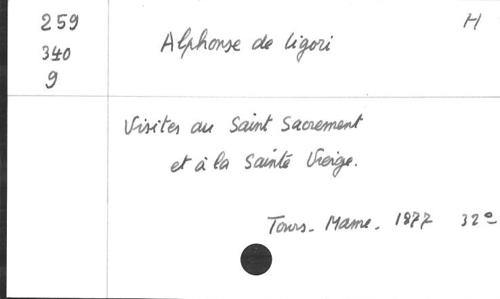 259
H
Alphonse de Ligori
340
9
Visites au Saint Sacrement
et à la Sainte Vierge.
Tours - Mame - 1877 32e